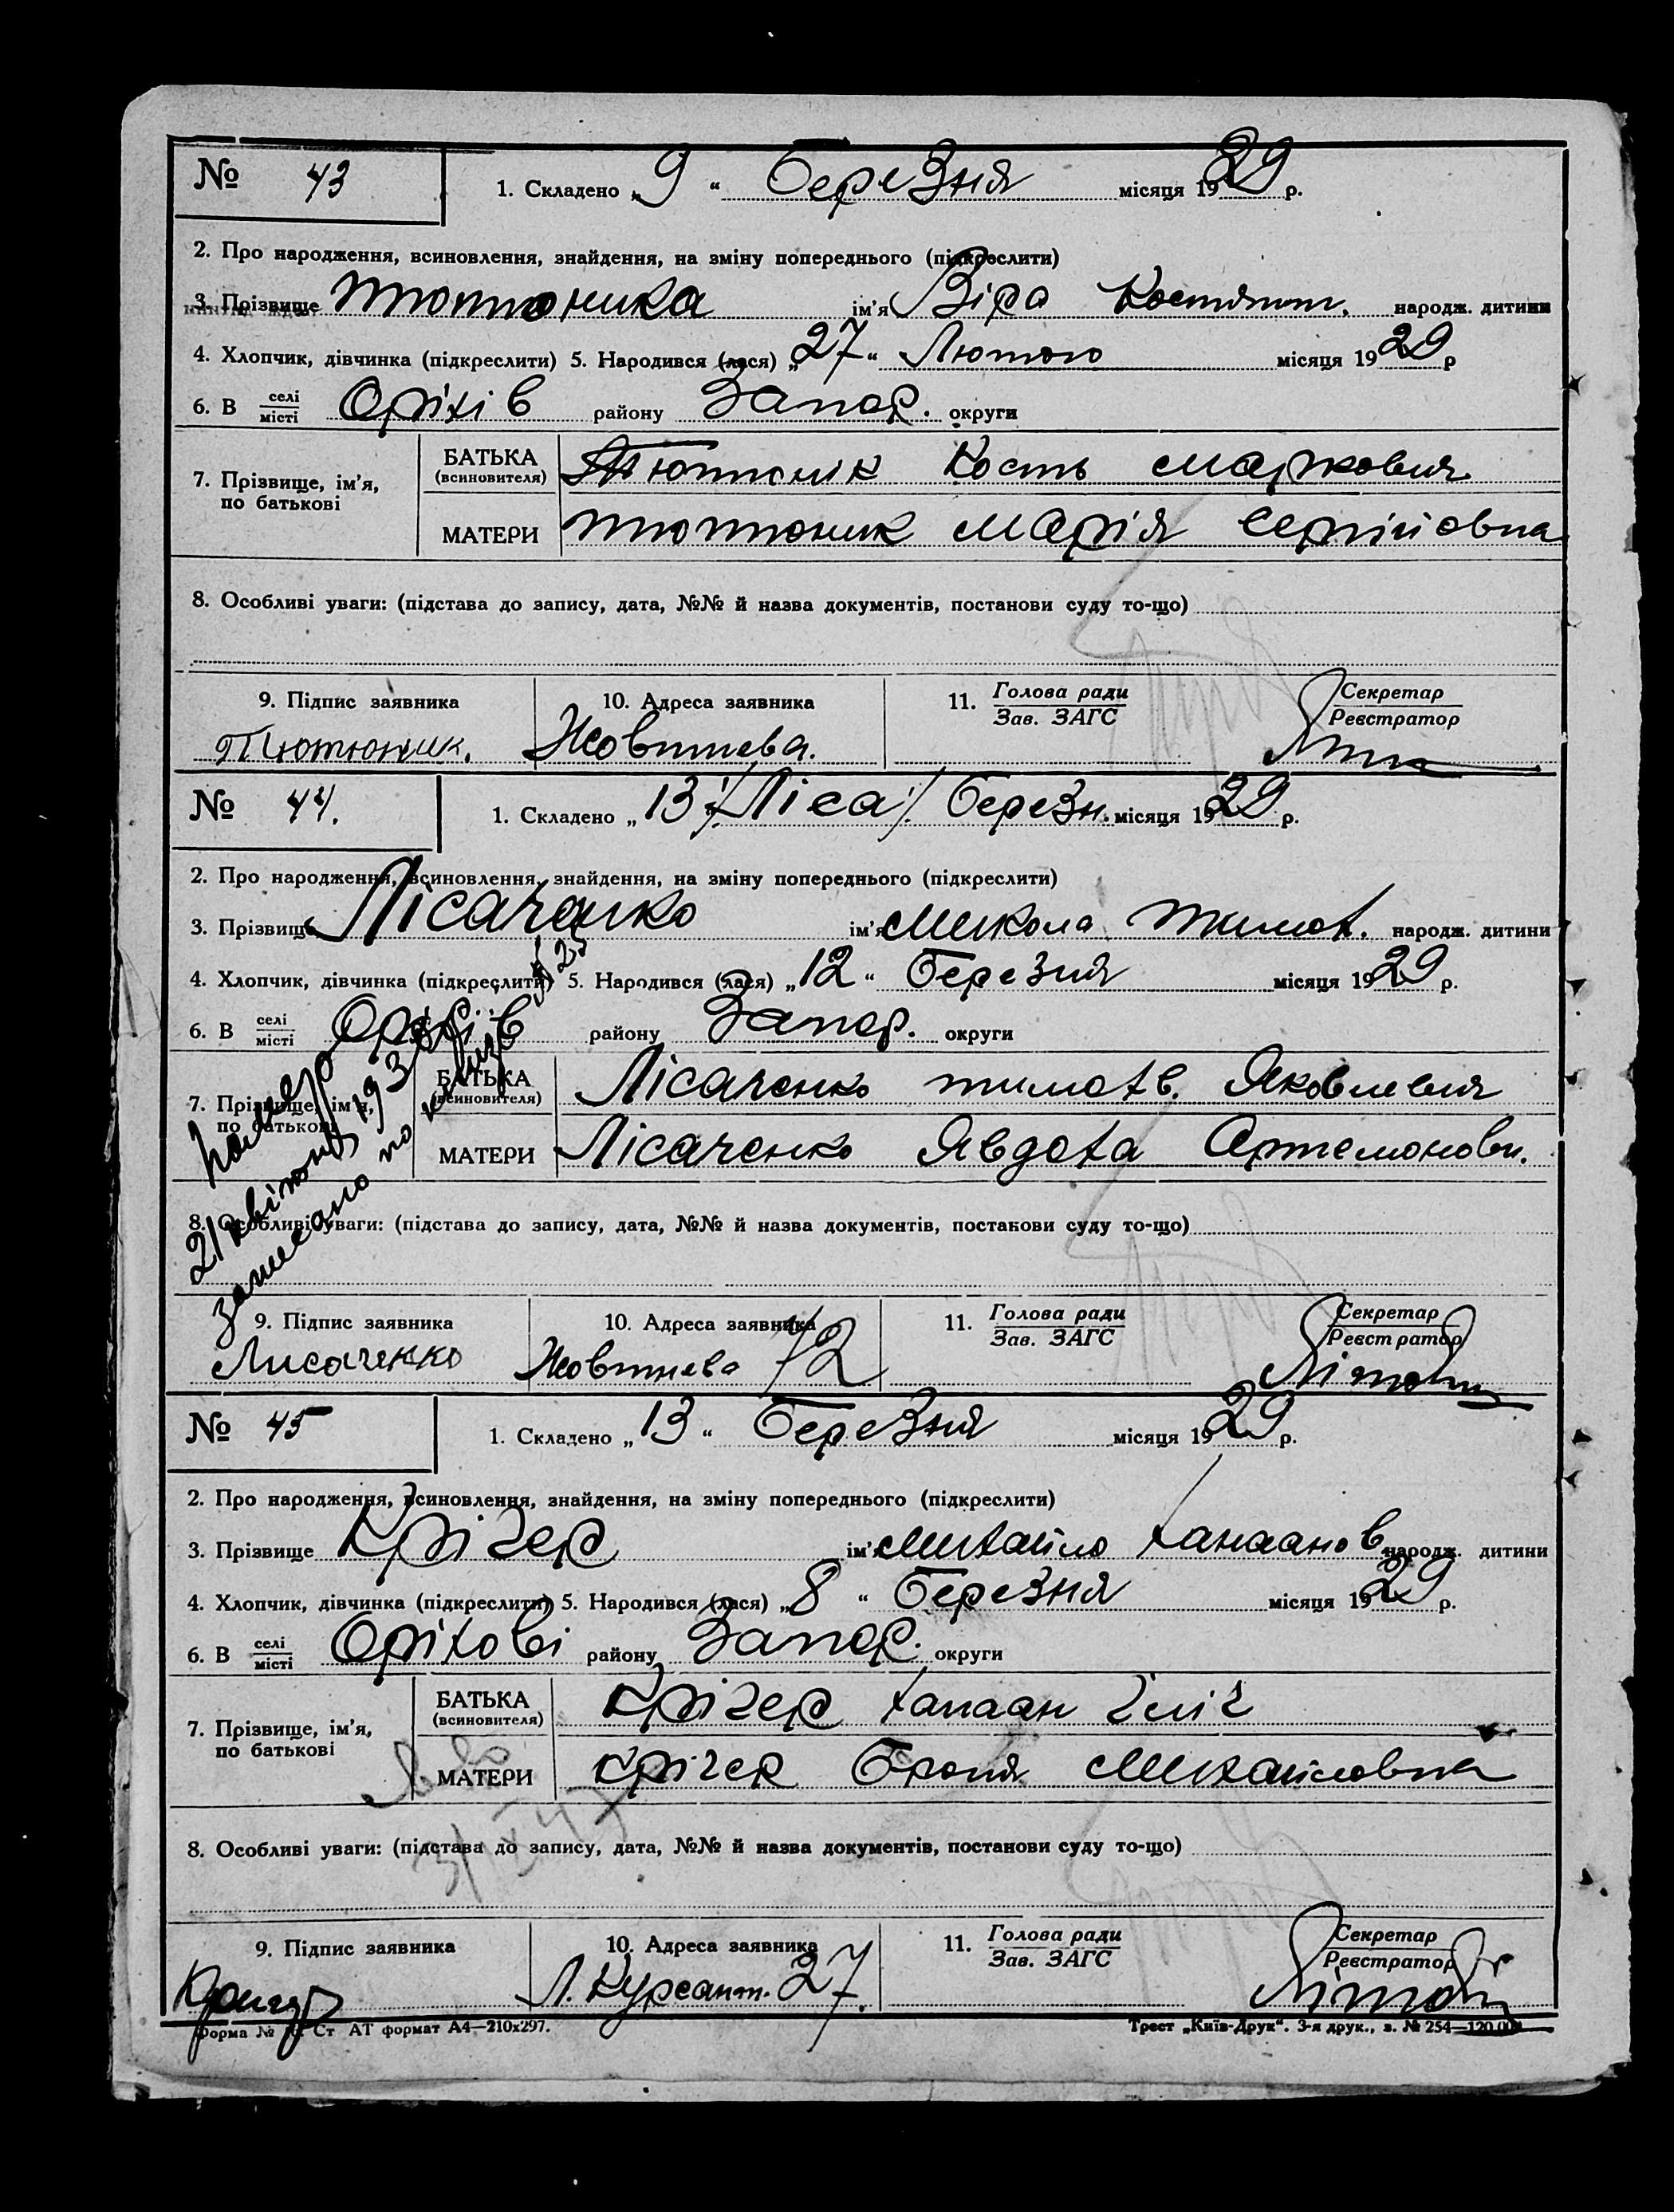 № 43 1. Складено „9“ Березня місяця 1929 р.
2. Про народження, всиновлення, знайдення, на зміну попереднього (підкреслити)
3. Прізвище Тютюника ім'я Віра Костянт. народж. дитини
4. Хлопчик, дівчинка (підкреслити) 5. Народився (лася) „27“ Лютого місяця 1929 р
6. В селі/місті Оріхів району Запор. округи
7. Прізвище, ім'я, по батькові БАТЬКА (всиновителя) Тютюник Кость Маркович
МАТЕРИ Тютюник Марія Сергіиовна
8. Особливі уваги: (підстава до запису, дата, №№ й назва документів, постанови суду то-що)
9. Підпис заявника 10. Адреса заявника 11. Голова ради/Зав. ЗАГС Секретар/Реєстратор
Тютюник. Жовтнева.
№ 44. 1. Складено „13 /Ліса/ Березн. місяця 1929 р.
2. Про народження, всиновлення, знайдення, на зміну попереднього (підкреслити)
3. Прізвище Лісаченко ім'я Микола Тимох. народж. дитини
4. Хлопчик, дівчинка (підкреслити) 5. Народився (лася) „12“ Березня місяця 1929 р.
6. В селі/місті Оріхів району Запор. округи
7. Прізвище, ім'я, по батькові БАТЬКА (всиновителя) Лісаченко Тимохв. Яковлевич
МАТЕРИ Лісаченко Явдоха Артемоновн.
21 квітня 193
записано по
8. Особливі уваги: (підстава до запису, дата, №№ й назва документів, постанови суду то-що)
9. Підпис заявника 10. Адреса заявника 11. Голова ради/Зав. ЗАГС Секретар/Реєстратор
Лисаченко Жовтнева 72
№ 45 1. Складено „13“ Березня місяця 1929 р.
2. Про народження, всиновлення, знайдення, на зміну попереднього (підкреслити)
3. Прізвище Крігер ім'я Михайло Ханаанов. народж. дитини
4. Хлопчик, дівчинка (підкреслити) 5. Народився (лася) „8“ Березня місяця 1929 р.
6. В селі/місті Оріхові району Запор. округи
7. Прізвище, ім'я, по батькові БАТЬКА (всиновителя) Крігер Ханаан
МАТЕРИ Крігер Броня Михайловна
8. Особливі уваги: (підстава до запису, дата, №№ й назва документів, постанови суду то-що)
9. Підпис заявника 10. Адреса заявника 11. Голова ради/Зав. ЗАГС Секретар/Реєстратор
Л. Курсант. 27.
Форма № Ст АТ формат А4—210x297. Трест „Київ-Друк“. 3-я друк., з. № 254—120.000